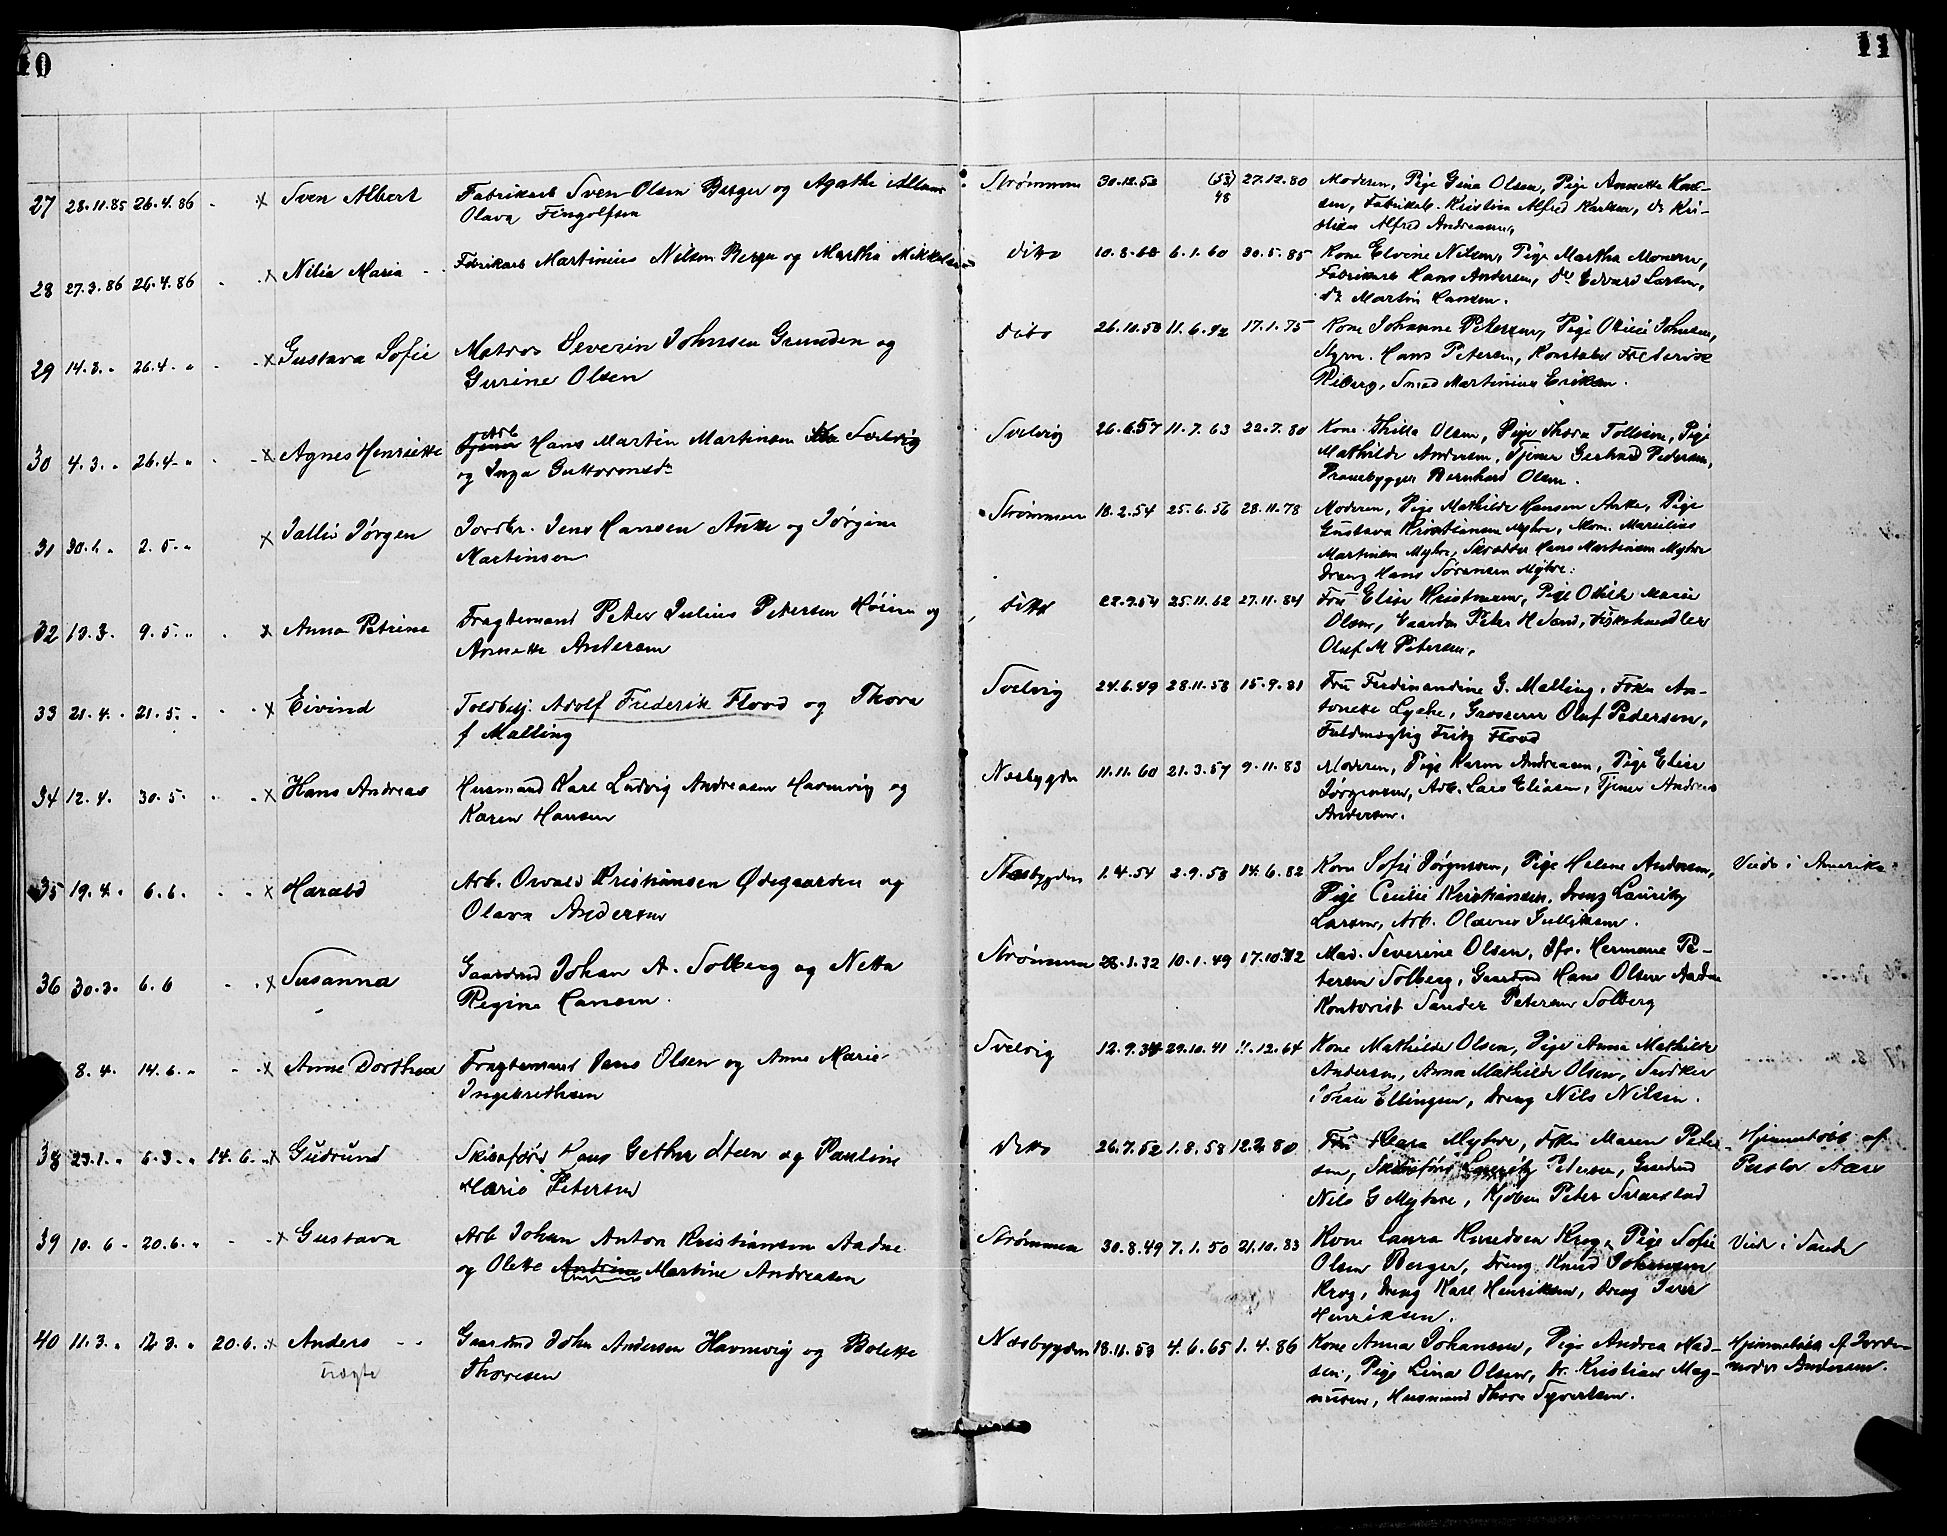 10
11
27 28.11.85 26.4.86 - x Sven Albert Fabrikarb Sven Olsen Berger og Agathe
Olava Fingolfsen
Strømmen 30.12.53 (53) 48 27.12.80 Moderen, Pige Gina Olsen, Pige Annette Karl-
sen, Fabrikarb. Kristian Alfred Karlsen, do Kri-
stian Alfred Andreasen,
28 27.3.86 26.4.86 - x Nilia Maria - - Fabrikarb Martinius Nilsen Berger og Martha Mikkelsen
ditto 10.8.60 6.1.60 30.5.85 Kone Elvine Nilsen, Pige Martha Monsen,
Fabrikarb Hans Andersen, do Edvard Larsen,
do Martin Hansen.
29 14.3. " 26.4 " - - x Gustava Sofie Matros Severin Johnsen Grunden og
Gurine Olsen
ditto 26.10.50 11.6.42 17.1.75 Kone Johanne Petersen, Pige Otilie Johnsen,
Styrm. Hans Petersen, Konstabel Frederik
Riberg, Smed Martinius Eriksen.
30 4.3. " 26.4 " - - x Agnes Henriette Arb Hans Martin Martinsen Svelvig
og Inga Guttormsdr
Svelvig 26.6.57 11.7.63 22.7.80 Kone Thilla Olsen, Pige Thora Tollesen, Pige
Mathilde Andersen, Tjener Gerhard Pedersen,
Pramebygger Bernhard Olsen.
31 30.1. " 2.5. " x Jalli Jørgen Jordbr. Jens Hansen Anke og Jørgine
Martinsen
Strømmen 18.2.54 25.6.56 28.11.78 Moderen, Pige Mathilde Hansen Anke, Pige
Gustava Kristiansen Myhre, Møm. Marelius
Martinsen Myhre, Skrædder Hans Martinsen Myhre
Dreng Hans Sørensen Myhre.
32 13.3. 9.5. " - x Anna Petrine Fragtemand Peter Julius Petersen Høien og
Annette Andersen
ditto 28.9.54 25.11.62 27.11.84 Fru Elise Kristensen, Pige Othilie Marie
Olsen, Gaardm Peter H Sand, Fiskehandler
Oluf M Petersen.
33 21.4. " 21.5. " - - x Eivind Toldbetj. Adolf Frederik Flood og Thora
f Malling
Svelvig 24.6.49 28.11.58 15.9.81 Fru Ferdinandine G. Malling, Frøken An-
tonette Lyche, Grosserer Oluf Pedersen,
Fuldmægtig Fritz Flood
34 12.4. 30.5. " - - x Hans Andreas Husmand Karl Ludvig Andreasen Havnevig og
Karen Hansen
Nesbygden 11.11.60 21.3.57 9.11.83 Moderen, Pige Karen Andreasen, Pige Elise
Jørgensen, Arb. Lars Eliasen, Tjener Andreas
Andersen.
35 19.4. " 6.6. " - - x Harald Arb. Osvald Kristiansen Ødegaarden og
Olava Andersen
Nesbygden 1.4.54 2.9.53 14.6.82 Kone Sofie Jørgensen, Pige Helene Andersen,
Pige Cecilie Kristiansen, Dreng Lauritz
Larsen, Arb. Olavus Gulliksen.
Viede i Amerika
36 30.3. 6.6 - - x Susanna Gaardmd Johan A. Solberg og Netta
Regine Hansen.
Strømmen 28.1.32 10.1.49 17.10.72 Mad. Severine Olsen, Jfr. Hermane Pe-
tersen Solberg, Gaardmd Hans Olsen Aadne
Kontorist Sander Petersen Solberg
8.4. 14.6. " - - x Anne Dorthea Fragtemand Jens Olsen og Anne Marie
Ingebrethsen
Svelvig 12.9.34 29.10.41 11.12.64 Kone Mathilde Olsen, Pige Anna Mathilde
Andersen, Anna Mathilde Olsen, Snedker
Johan Ellingsen, Dreng Nils Nilsen.
38 29.1. " 6.3. " 14.6. " x Gudrund Skibsfører Hans Gether Steen og Pauline
Marie Petersen
ditto 26.7.52 1.8.58 12.2.80 Fru Klara Myhre, Frøken Maren Peter
sen, Skibsfører Lauritz Pedersen, Gaardmd
Nils G Myhre, Kjøbm Peter Svarstad
Hjemmedøbt af
Pastor Aars
39 10.6 - 20.6. " - - x Gustava Arb Johan Anton Kristiansen Aadne
og Olette Andrine Martine Andreasen
Strømmen 30.8.49 7.1.50 21.10.83 Kone Laura Knudsen Krog, Pige Sofie
Olsen Berger, Dreng Knud Johansen
Krog, Dreng Karl Henriksen, Dreng Iver
Henriksen.
Viede i Sande
40 11.3. " 12.3. " 20.6. " x Anders - - Gaardmd John Andersen Havnevig og Bolette
Thoresen
Trægte
Nesbygden 18.11.53 4.6.65 1.4.86 Kone Anna Johansen, Pige Andrea Mad-
sen, Pige Lina Olsen, do Kristian Mag-
nusen, Husmand Thore Syvertsen.
Hjemmedøbt af Jorde-
moder Andersen.